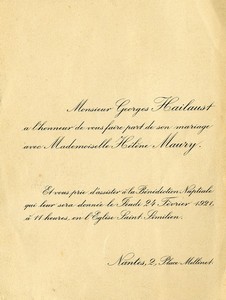 Monsieur Georges Hailaust
a l'honneur de vous faire part de son mariage
avec Mademoiselle Hélène Maury.
Et vous prie d'assister à la Bénédiction Nuptiale
qui leur sera donnée le Jeudi 24 Février 1921,
à 11 heures, en l'Eglise Saint Similien.
Nantes, 2, Place Mellinet